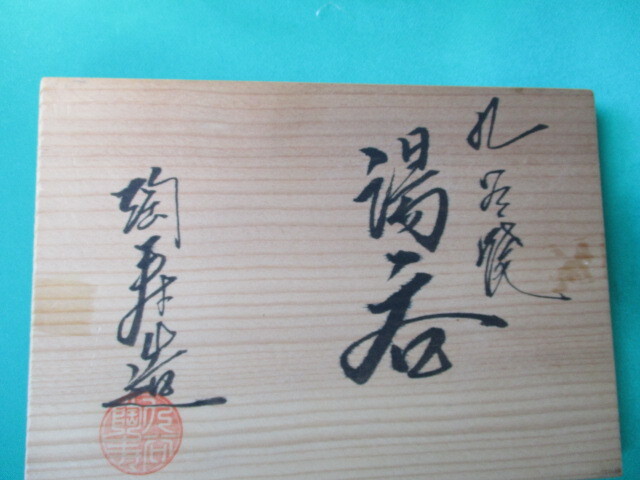 九谷焼
湯呑
陶寿造